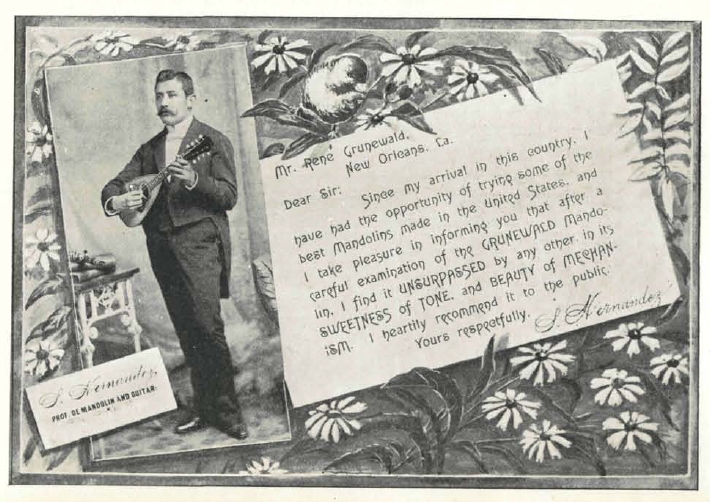 Mr. René Grunewald,
New Orleans, La.
Dear Sir:
Since my arrival in this country, I
have had the opportunity of trying some of the
best Mandolins made in the United States, and
I take pleasure in informing you that after a
careful examination of the GRUNEWALD Mando-
lin, I find it UNSURPASSED by any other, in its
SWEETNESS of TONE, and BEAUTY of MECHAN-
ISM. I heartily recommend it to the public.
Yours respectfully, S. Hernandez
S. Hernandez,
PROF. DE MANDOLIN AND GUITAR.